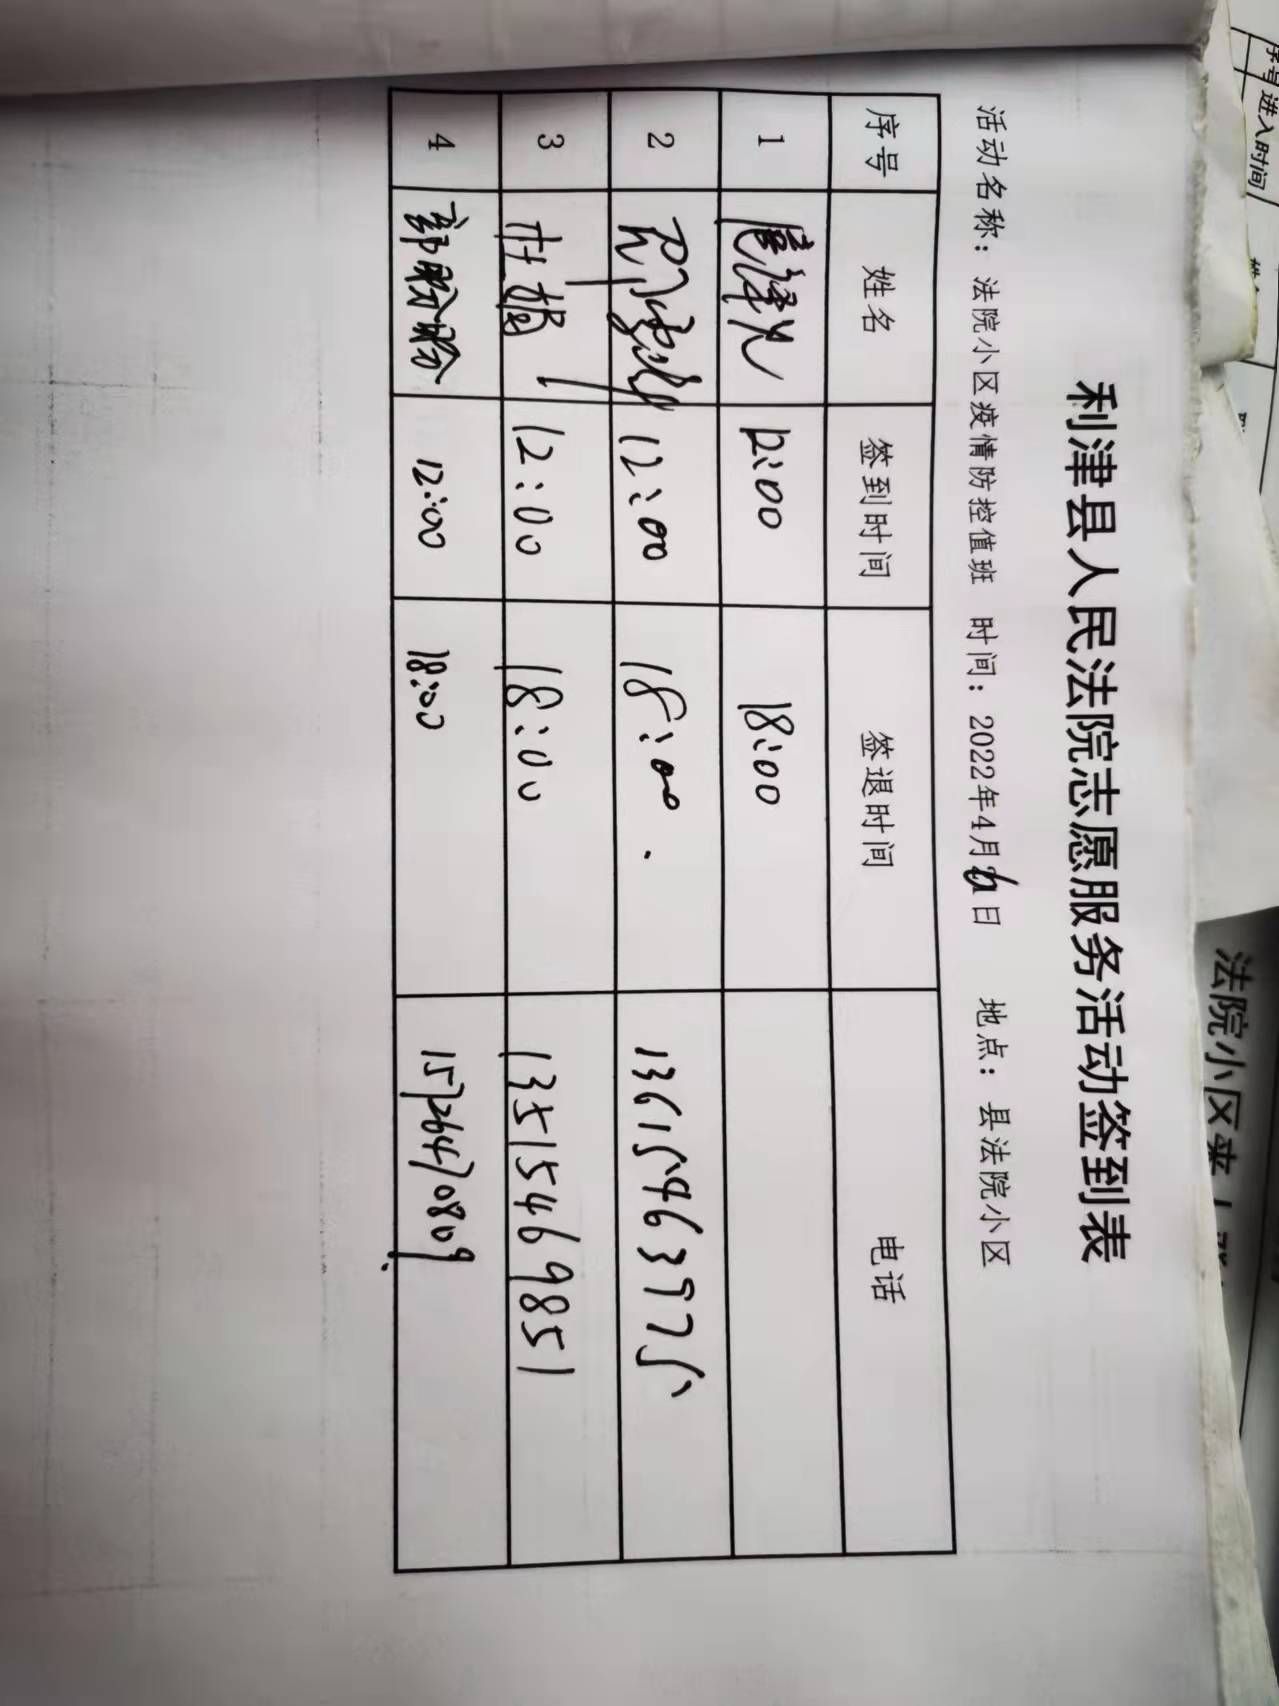 利津县人民法院志愿服务活动签到表
活动名称：法院小区疫情防控值班 时间：2022年4月6日 地点：县法院小区
序号 姓名 签到时间 签退时间 电话
1 12:00 18:00
2 12:00 18:00. 13615463975
3 杜娟 12:00 18:00 13515469851
4 郭盼盼 12:00 18:00 15726470809
法院小区来人
序号 进入时间